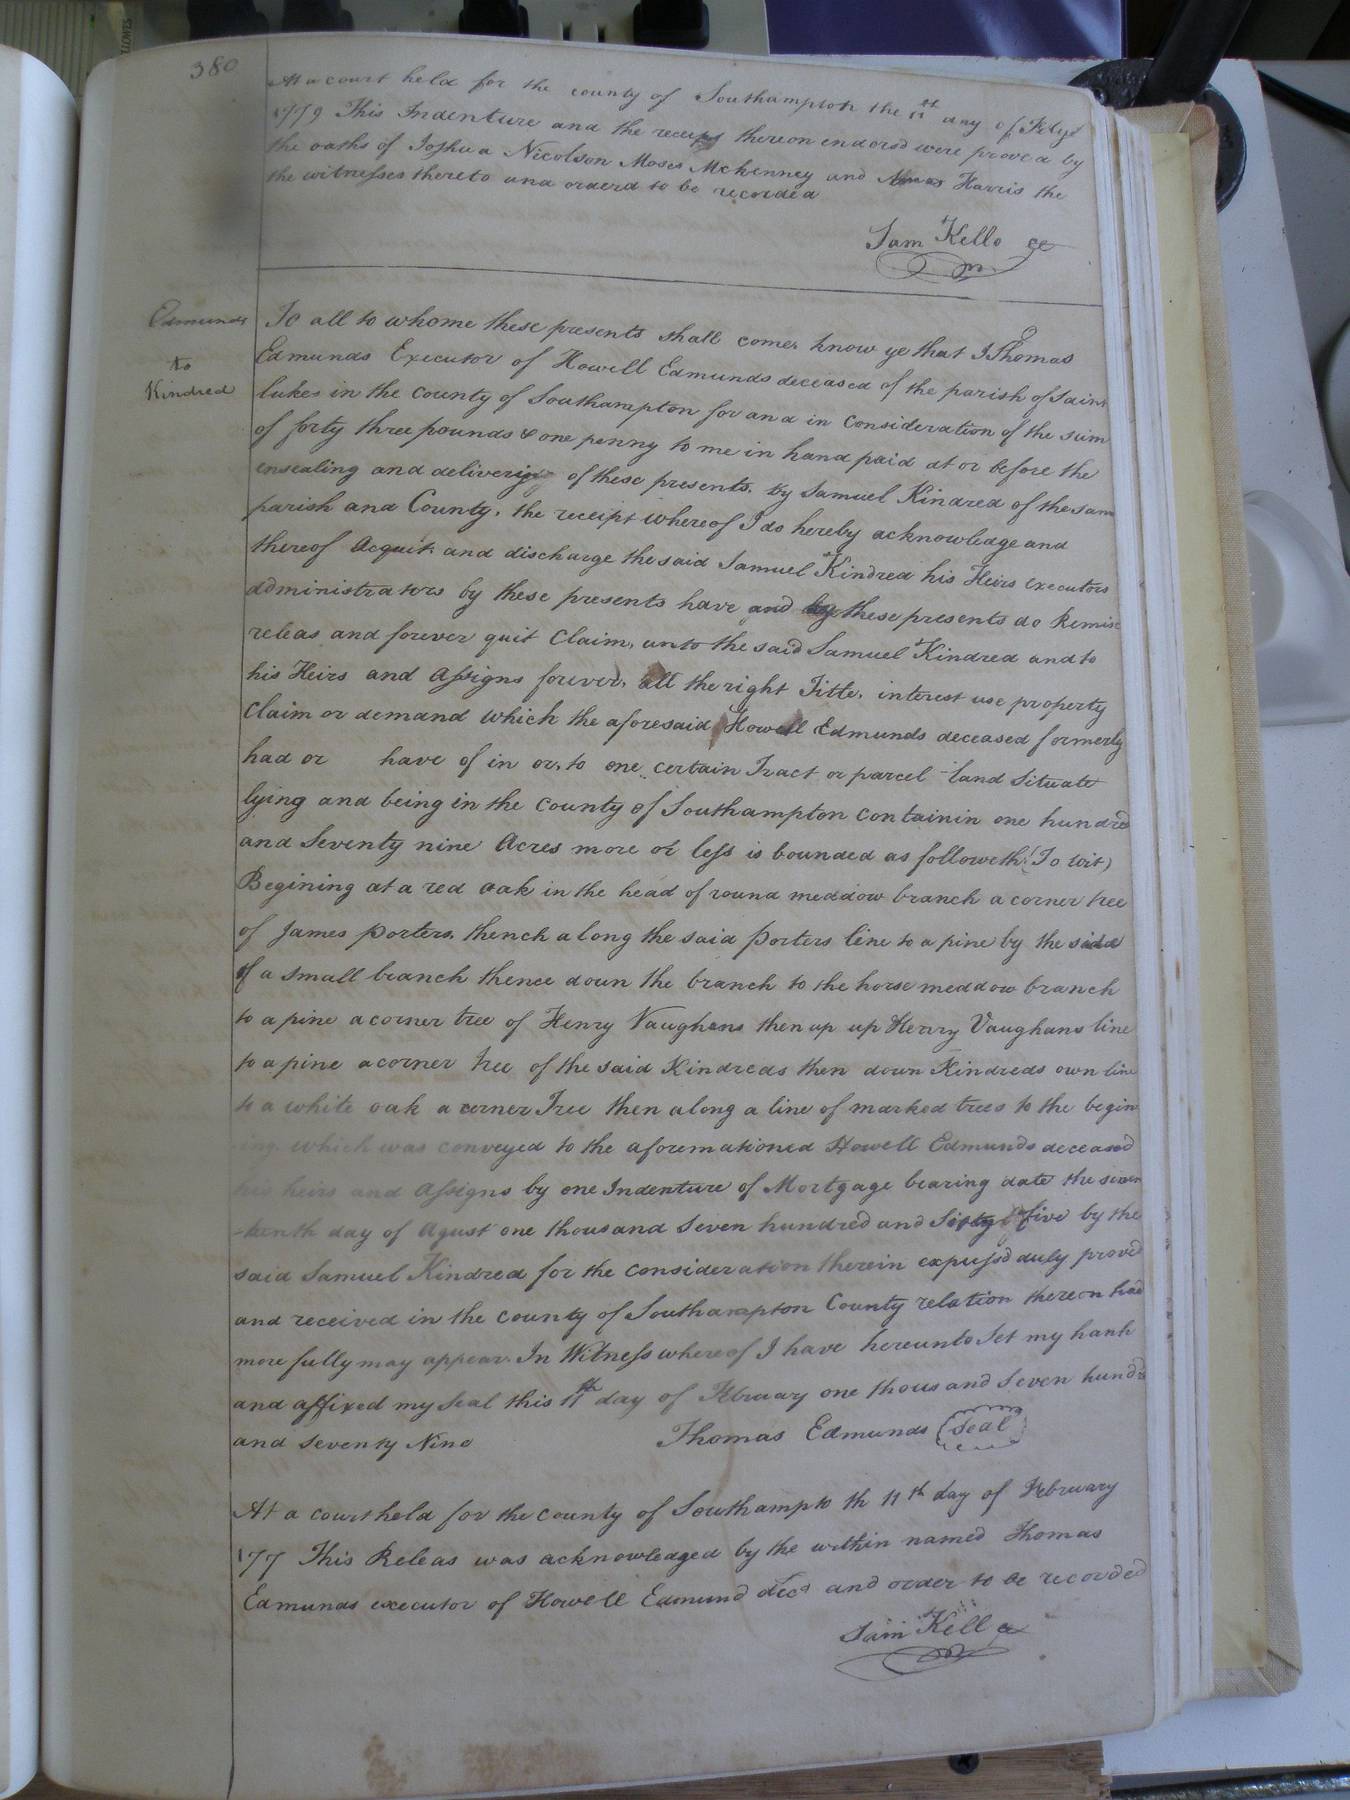 380
At a court held for the county of Southampton the 11th day of Feby
1779 This Indenture and the receipt thereon endorsd were proved by
the oaths of Joshua Nicolson Moses Mckenney and Harris the
the witnesses thereto and orderd to be recorded
Sam Kello
Edmunds
to
Kindred
To all to whome these presents shall come, know ye that I Thomas
Edmunds Executor of Howell Edmunds deceased of the parish of Saint
lukes in the county of Southampton for and in Consideration of the sum
of forty three pounds & one penny to me in hand paid at or before the
ensealing and delivering of these presents. by Samuel Kindred of the same
parish and County, the receipt whereof I do hereby acknowledge and
thereof Acquit and discharge the said Samuel Kindred his Heirs executors
administrators by these presents have and by these presents do Remise
releas and forever quit Claim, unto the said Samuel Kindred and to
his Heirs and Assigns forever, all the right Title, interest use property
Claim or demand which the aforesaid Howell Edmunds deceased formerly
had or have of in or, to one certain Tract or parcel land Situate
lying and being in the county of Southampton containin one hundred
and Seventy nine Acres more or less is bounded as followeth (To wit)
Begining at a red oak in the head of round meddow branch a corner tree
of James porters, thench along the said porters line to a pine by the side
of a small branch thence down the branch to the horse meddow branch
to a pine a corner tree of Henry Vaughans then up up Henry Vaughans line
to a pine a corner tree of the said Kindreds then down Kindreds own line
to a white oak a corner Tree then along a line of marked trees to the begin
ing. which was conveyed to the aforemationed Howell Edmunds deceased
his heirs and Assigns by one Indenture of Mortgage bearing date the seven
-teenth day of Agust one thousand Seven hundred and Sixty five by the
said Samuel Kindred for the consideration therein expressd duly proved
and received in the county of Southampton County relation thereon had
more fully may appear. In Witness whereof I have hereunto Set my hanh
and affixed my Seal this 11th day of February one thousand Seven hundre
and seventy Nine Thomas Edmunds Seal
At a court held for the county of Southampto th 11th day of February
177 This Releas was acknowledged by the within named Thomas
Edmunds executor of Howell Edmund decd and order to be recorded
Sam Kell